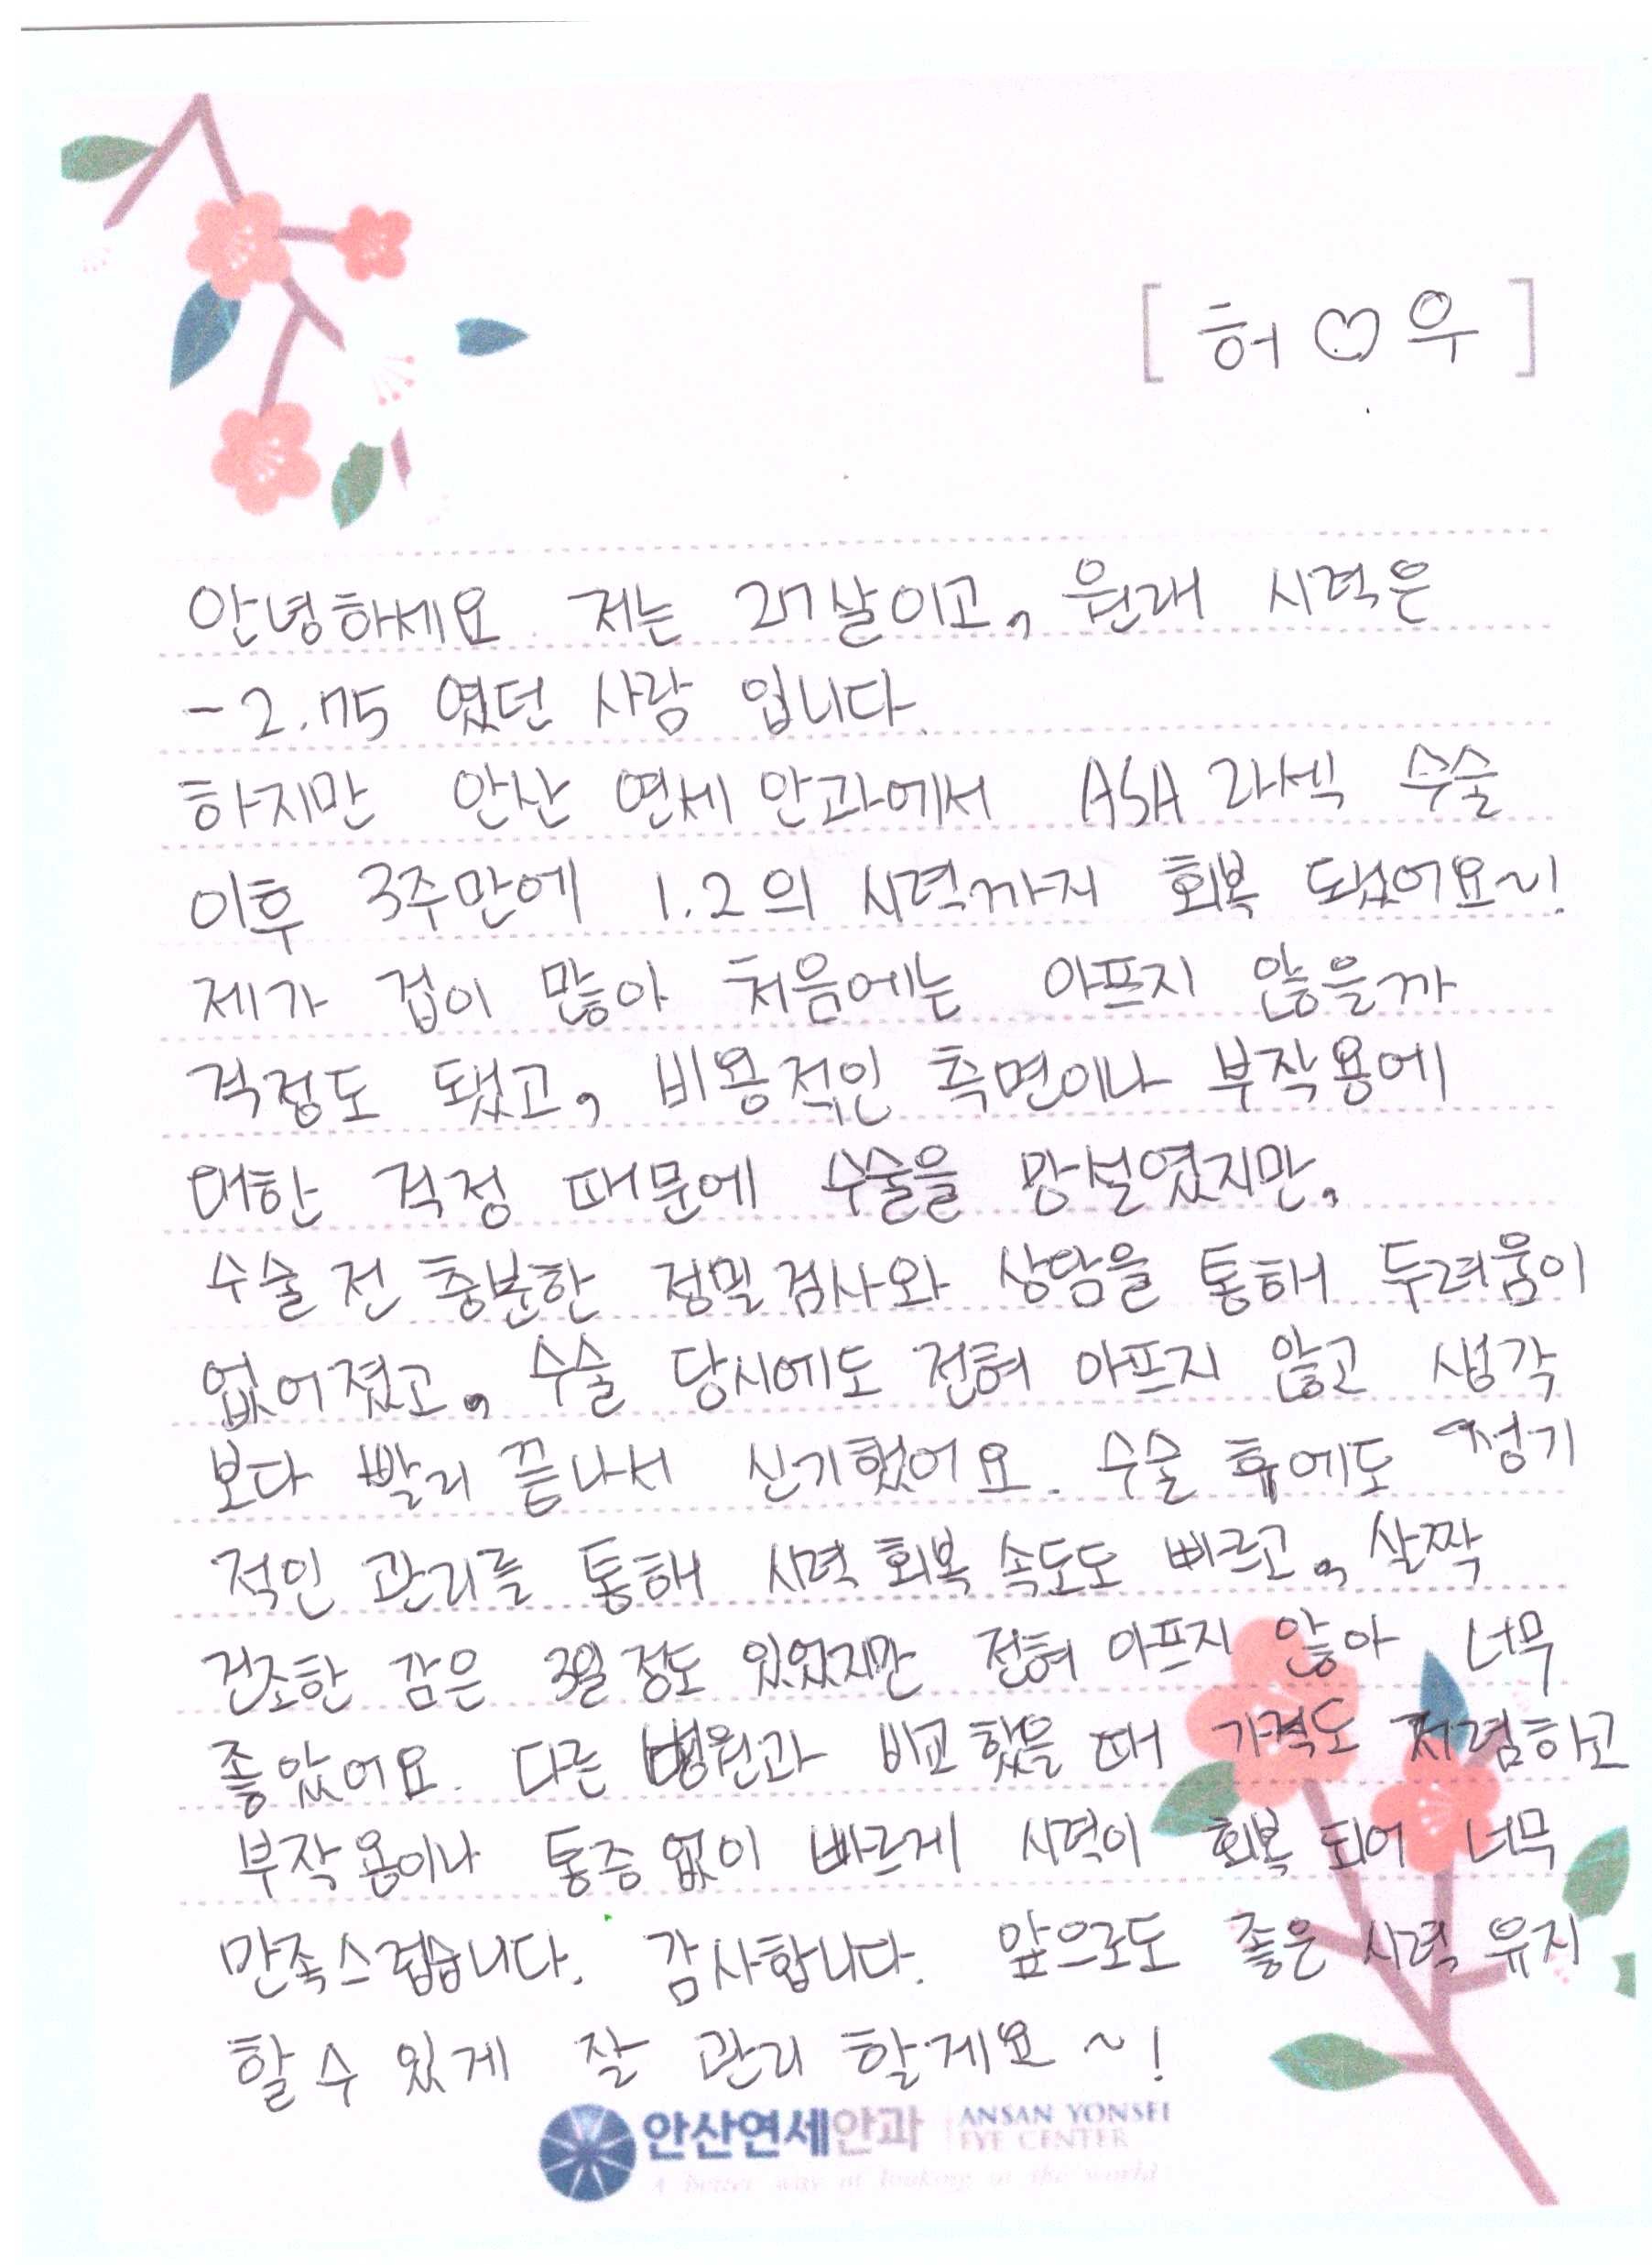 [ 허♡우 ]
안녕하세요 저는 27살이고, 원래 시력은
-2.75 였던 사람 입니다.
하지만 안산 연세 안과에서 ASA 라섹 수술
이후 3주만에 1.2의 시력까지 회복 됐었어요~!
제가 겁이 많아 처음에는 아프지 않을까
걱정도 됐고, 비용적인 측면이나 부작용에
대한 걱정 때문에 수술을 망설였지만,
수술 전 충분한 정밀검사와 상담을 통해 두려움이
없어졌고, 수술 당시에도 전혀 아프지 않고 생각
보다 빨리 끝나서 신기했어요. 수술 후에도 정기
적인 관리를 통해 시력 회복 속도도 빠르고, 살짝
건조한 감은 3일 정도 있었지만 전혀 아프지 않아 너무
좋았어요. 다른 병원과 비교 했을 때 가격도 저렴하고
부작용이나 통증 없이 빠르게 시력이 회복 되어 너무
만족스럽습니다. 감사합니다. 앞으로도 좋은 시력 유지
할 수 있게 잘 관리 할게요~!
안산연세안과 ANSAN YONSEI
EYE CENTER
A better way of looking at the world